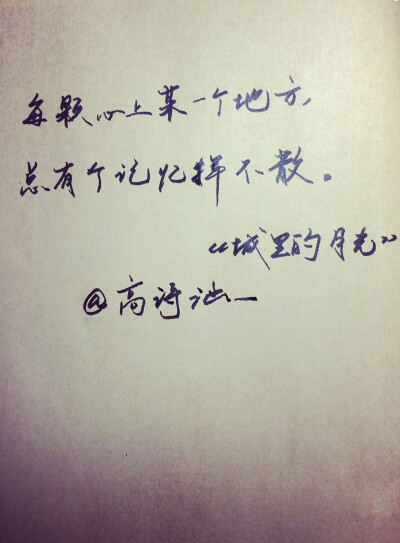 每颗心上某一个地方，
总有个记忆挥不散。
《城里的月光》
@高诗